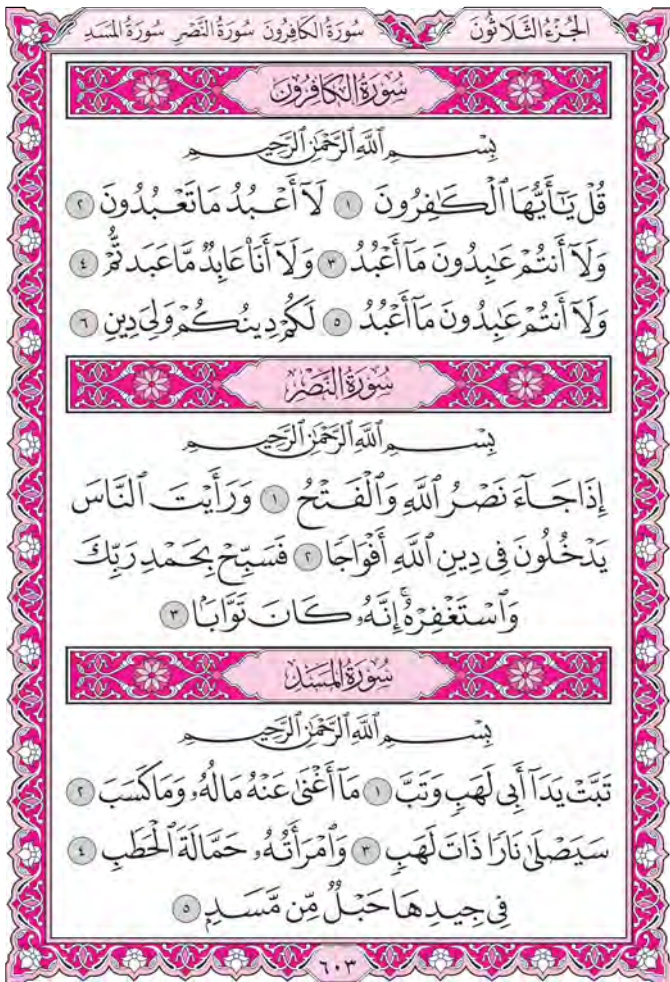 الجُزْءُ الثَّلَاثُونَ سُورَةُ الكَافِرُونَ سُورَةُ النَّصْرِ سُورَةُ المَسَدِ
سُورَةُ الكَافِرُونَ
بِسْمِ ٱللَّهِ ٱلرَّحْمَٰنِ ٱلرَّحِيمِ
قُلْ يَٰٓأَيُّهَا ٱلْكَٰفِرُونَ ١ لَآ أَعْبُدُ مَا تَعْبُدُونَ ٢
وَلَآ أَنتُمْ عَٰبِدُونَ مَآ أَعْبُدُ ٣ وَلَآ أَنَا۠ عَابِدٌ مَّا عَبَدتُّمْ ٤
وَلَآ أَنتُمْ عَٰبِدُونَ مَآ أَعْبُدُ ٥ لَكُمْ دِينُكُمْ وَلِىَ دِينِ ٦
سُورَةُ النَّصْرِ
بِسْمِ ٱللَّهِ ٱلرَّحْمَٰنِ ٱلرَّحِيمِ
إِذَا جَآءَ نَصْرُ ٱللَّهِ وَٱلْفَتْحُ ١ وَرَأَيْتَ ٱلنَّاسَ
يَدْخُلُونَ فِى دِينِ ٱللَّهِ أَفْوَاجًا ٢ فَسَبِّحْ بِحَمْدِ رَبِّكَ
وَٱسْتَغْفِرْهُۚ إِنَّهُۥ كَانَ تَوَّابًۢا ٣
سُورَةُ المَسَدِ
بِسْمِ ٱللَّهِ ٱلرَّحْمَٰنِ ٱلرَّحِيمِ
تَبَّتْ يَدَآ أَبِى لَهَبٍ وَتَبَّ ١ مَآ أَغْنَىٰ عَنْهُ مَالُهُۥ وَمَا كَسَبَ ٢
سَيَصْلَىٰ نَارًا ذَاتَ لَهَبٍ ٣ وَٱمْرَأَتُهُۥ حَمَّالَةَ ٱلْحَطَبِ ٤
فِى جِيدِهَا حَبْلٌ مِّن مَّسَدٍۭ ٥
٦٠٣